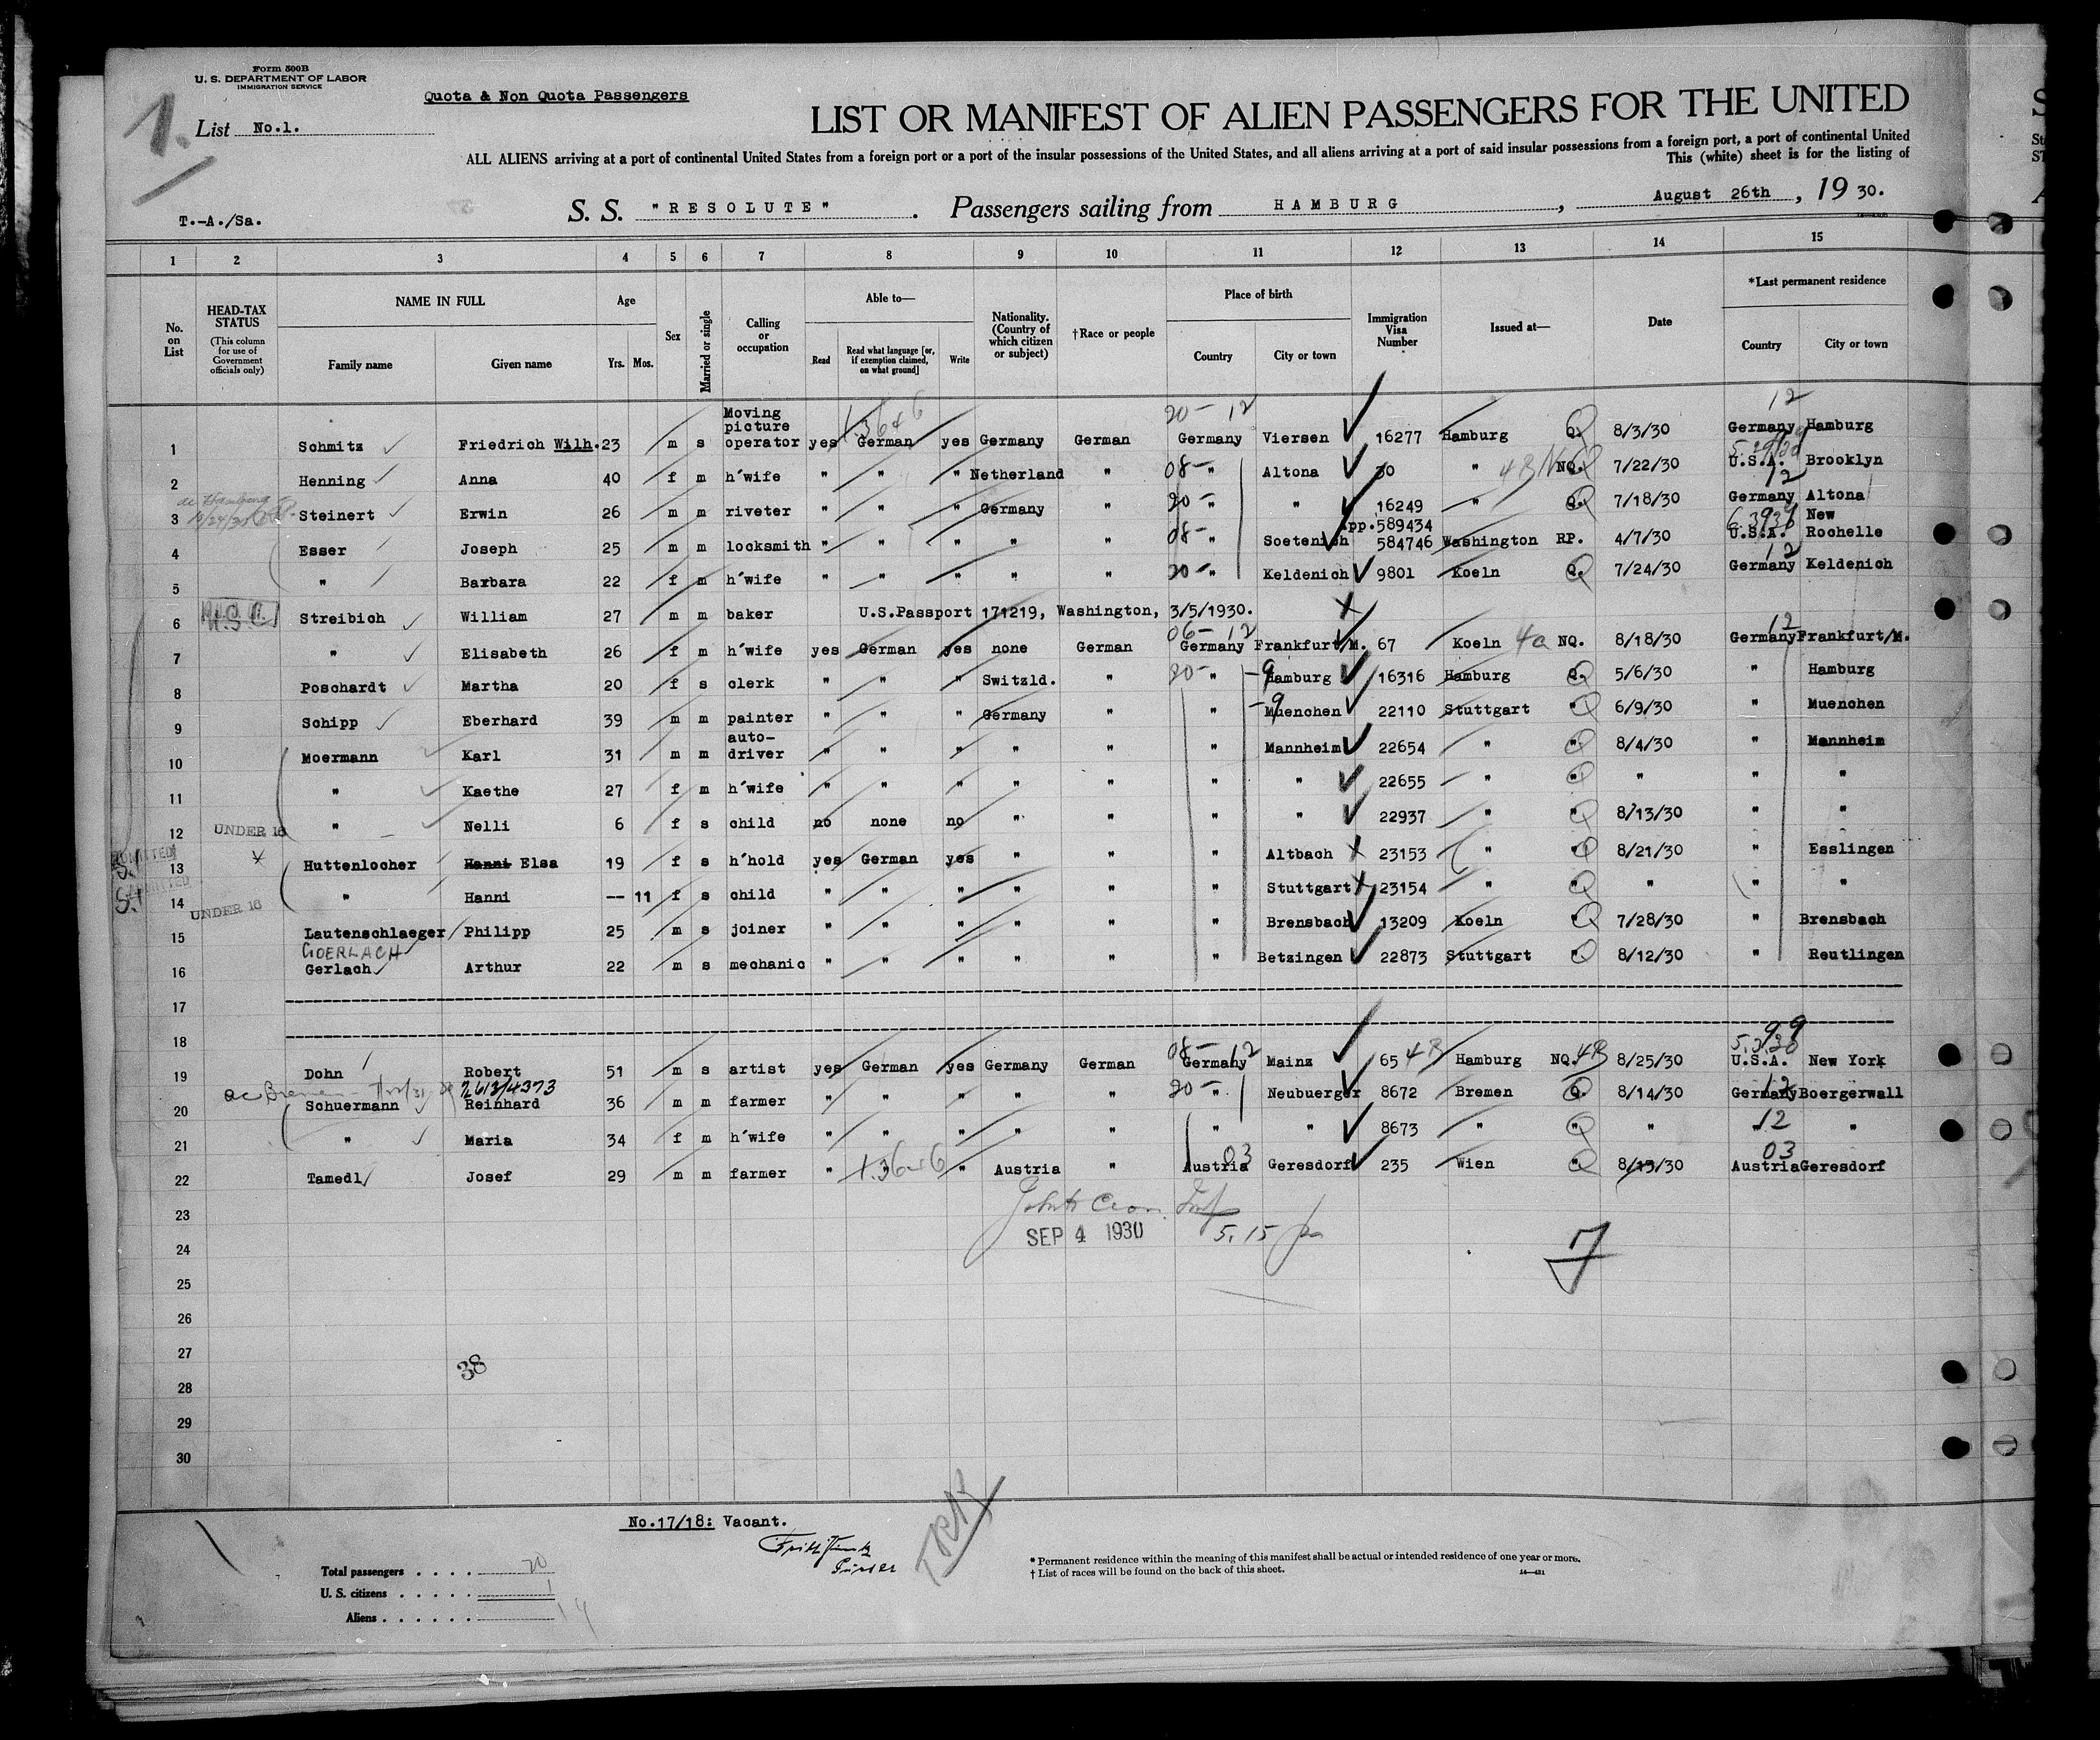 Form 500B
U. S. DEPARTMENT OF LABOR
IMMIGRATION SERVICE
Quota & Non Quota Passengers
1.
List No.1.
LIST OR MANIFEST OF ALIEN PASSENGERS FOR THE UNITED
ALL ALIENS arriving at a port of continental United States from a foreign port or a port of the insular possessions of the United States, and all aliens arriving at a port of said insular possessions from a foreign port, a port of continental United
This (white) sheet is for the listing of
T.-A./Sa.
S. S. "RESOLUTE" . Passengers sailing from HAMBURG , August 26th , 19 30.
1 2 3 4 5 6 7 8 9 10 11 12 13 14 15
No. on List
HEAD-TAX STATUS
(This column for use of Government officials only)
NAME IN FULL
Family name Given name
Age
Yrs. Mos.
Sex
Married or single
Calling or occupation
Able to—
Read
Read what language [or, if exemption claimed, on what ground]
Write
Nationality. (Country of which citizen or subject)
†Race or people
Place of birth
Country City or town
Immigration Visa Number
Issued at—
Date
*Last permanent residence
Country City or town
20- 12 12
1 Schmitz Friedrich Wilh. 23 m s Moving picture operator yes German yes Germany German Germany Viersen 16277 Hamburg Q. 8/3/30 Germany Hamburg
2 Henning Anna 40 f m h'wife " " " Netherland " 08- " Altona 30 " 4B NQ. 7/22/30 U.S.A. Brooklyn
3 Steinert Erwin 26 m m riveter " " " Germany " 20- " " 16249 " Q. 7/18/30 Germany 12 Altona
App.589434
4 Esser Joseph 25 m m locksmith " " " " " 08- " Soetenich 584746 Washington RP. 4/7/30 U.S.A. New Rochelle
5 " Barbara 22 f m h'wife " " " " " 20- " Keldenich 9801 Koeln Q. 7/24/30 Germany 12 Keldenich
6 U.S.C. Streibich William 27 m m baker U.S.Passport 171219, Washington, 3/5/1930.
06- 12 12
7 " Elisabeth 26 f m h'wife yes German yes none German Germany Frankfurt/M. 67 Koeln 4a NQ. 8/18/30 Germany Frankfurt/M.
8 Poschardt Martha 20 f s clerk " " " Switzld. " 20- " -9 Hamburg 16316 Hamburg Q. 5/6/30 " Hamburg
9 Schipp Eberhard 39 m m painter " " " Germany " " -9 Muenchen 22110 Stuttgart " 6/9/30 " Muenchen
10 Moermann Karl 31 m m auto-driver " " " " " " Mannheim 22654 " " 8/4/30 " Mannheim
11 " Kaethe 27 f m h'wife " " " " " " " 22655 " " " " "
12 UNDER 16 " Nelli 6 f s child no none no " " " " 22937 " " 8/13/30 " "
13 Huttenlocher Hanni Elsa 19 f s h'hold yes German yes " " " Altbach 23153 " " 8/21/30 " Esslingen
14 UNDER 16 " Hanni -- 11 f s child " " " " " " Stuttgart 23154 " " " " "
15 Lautenschlaeger Philipp 25 m s joiner " " " " " " Brensbach 13209 Koeln " 7/28/30 " Brensbach
GOERLACH
16 Gerlach Arthur 22 m s mechanic " " " " " " Betzingen 22873 Stuttgart " 8/12/30 " Reutlingen
17
18
08- 12
19 Dohn Robert 51 m s artist yes German yes Germany German Germany Mainz 65 4B Hamburg NQ. 4B 8/25/30 U.S.A. New York
ac Bremen
20 Schuermann Reinhard 36 m m farmer " " " " " 20- " Neubuerger 8672 Bremen Q. 8/14/30 Germany 12 Boergerwall
21 " Maria 34 f m h'wife " " " " " " " 8673 " " " " 12 "
03 03
22 Tamedl Josef 29 m m farmer " " " Austria " Austria Geresdorf 235 Wien " 8/13/30 Austria Geresdorf
23
SEP 4 1930 5.15
24
7
25
26
27
38
28
29
30
No.17/18: Vacant.
Purser
Total passengers . . . . 20
U. S. citizens . . . . . 1
Aliens . . . . . . 19
* Permanent residence within the meaning of this manifest shall be actual or intended residence of one year or more.
† List of races will be found on the back of this sheet.